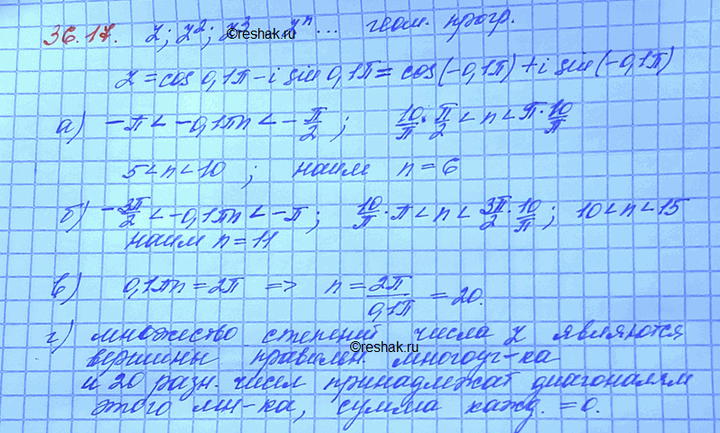 36.17. z; z²; z³ zⁿ... геом. прогр.
©reshak.ru
z = cos 0,1π - i sin 0,1π = cos(-0,1π) + i sin(-0,1π)
а) -π < -0,1πn < -π/2 ; 10/π · π/2 < n < π · 10/π
5 < n < 10 ; наим n = 6
б) -3π/2 < -0,1πn < -π ; 10/π · π < n < 3π/2 · 10/π ; 10 < n < 15
наим n = 11
в) 0,1πn = 2π => n = 2π/0,1π = 20.
г) множество степеней числа z являются
©reshak.ru
вершины правильн. многоуг-ка
и 20 разн. чисел принадлежат диагоналям
этого мн-ка, сумма кажд. = 0.